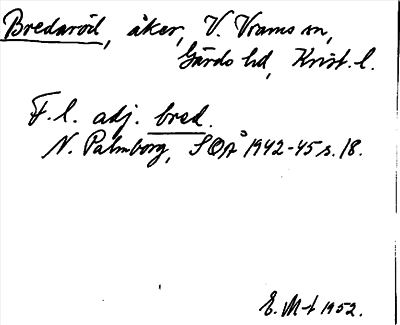 Bredaröd, åker, V. Vrams sn,
Gärds hd, Krist. l.
F. l. adj. bred.
N. Palmborg, SOÅ 1942-45 s. 18.
E. M-t 1952.